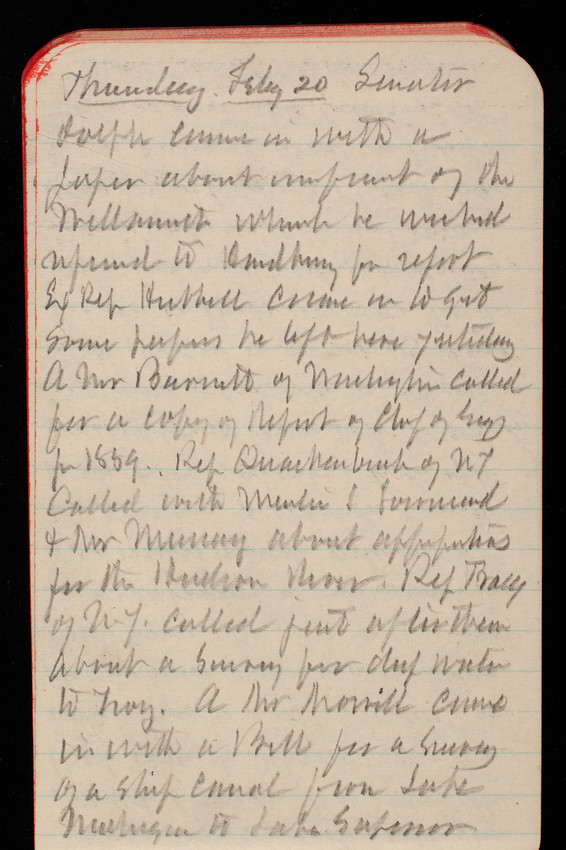 Thursday Feby 20 Senator
Dolph came in with a
paper about improvmt of the
Willamette which he wished
referred to Handbury for report
Ex Rep Hubbell came in to get
some papers he left here yesterday
A Mr Burnett of Washington called
for a copy of Report of Chf of Engs
for 1889. Rep Quackenbush of NY
Called with Martin I Townsend
& Mr Murray about appropriations
for the Hudson River. Rep Tracey
of N.Y. called just after them
about a Survey for deep water
to Troy. A Mr Morrill came
in with a Bill for a Survey
of a ship canal from Lake
Michigan to Lake Superior